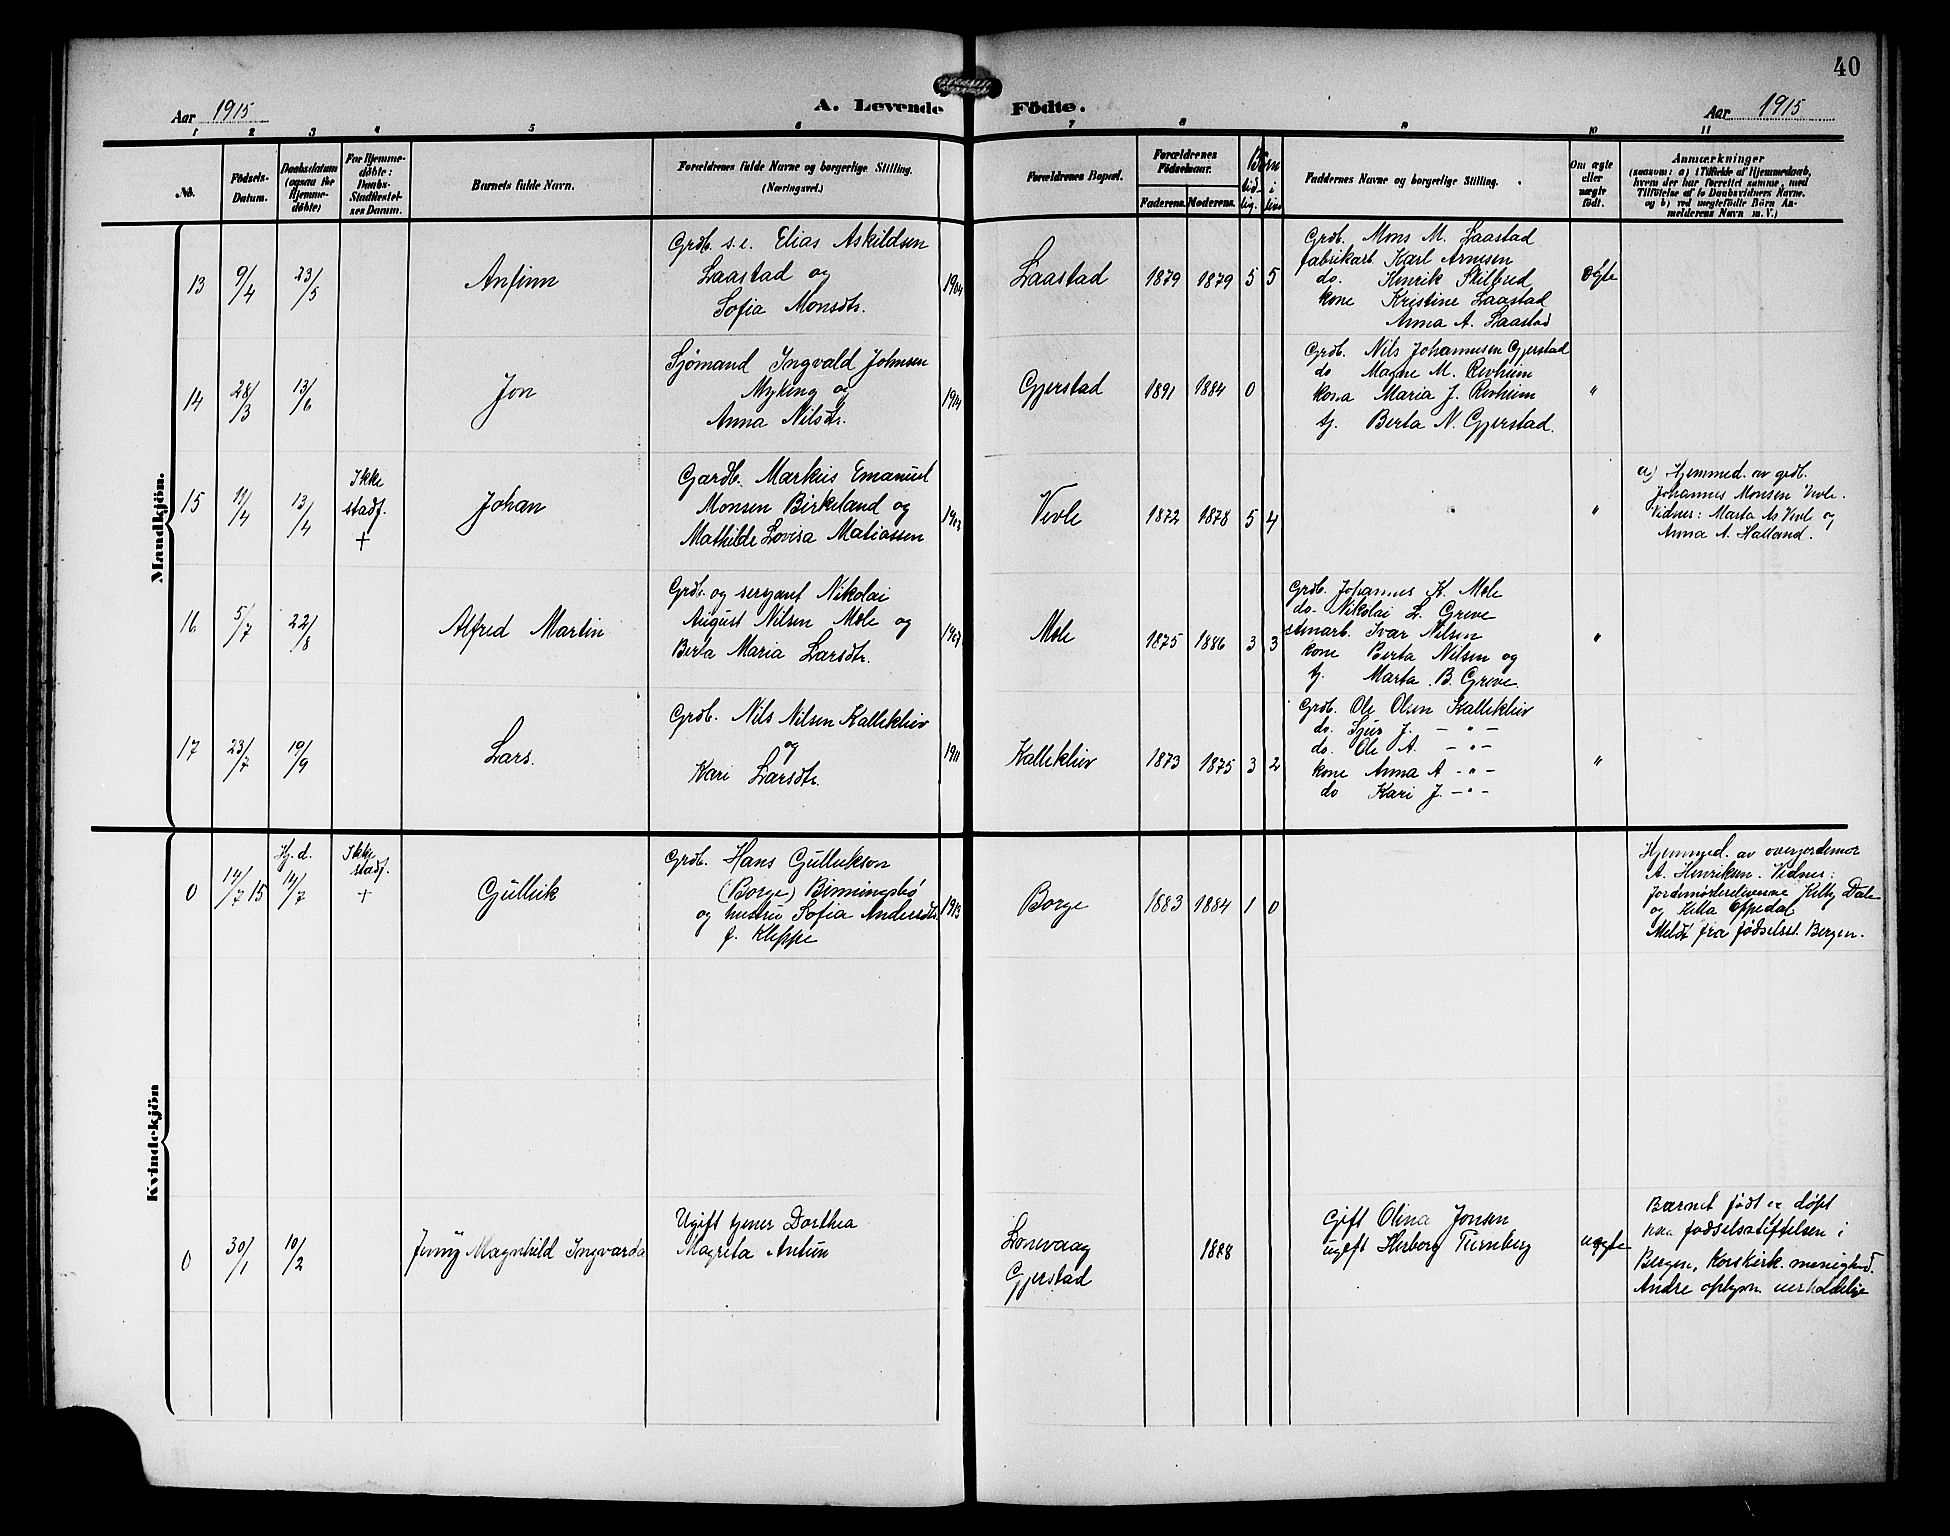 40
Aar 1915
A. Levende Födte.
Aar 1915
1 2 3 4 5 6 7 8 9 10 11
No.
Födsels-
Datum.
Daabsdatum
(ogsaa for
Hjemme-
døbte)
For Hjemme-
døbte:
Daabs-
Stadfæstel-
ses Datum.
Barnets fulde Navn.
Forældrenes fulde Navne og borgerlige Stilling.
(Næringsvei.)
Forældrenes Bopæl.
Forældrenes
Födselsaar.
Faderens. Moderens.
Faddernes Navne og borgerlige Stilling.
Om ægte
eller
uægte
født.
Anmærkninger
(saasom: a) i Tilfælde af Hjemmedaab,
hvem der har forrettet samme, med
Tilföielse af to Daabsvidners Navne.
og b) ved uægtefödte Börn An-
melderens Navn m. V.)
Mandkjön.
13 9/4 23/5 Anfinn
Grdb. s.e. Elias Askildsen
Laastad og
Sofia Monsdtr.
1904 Laastad 1879 1879 5 5
Grdb. Mons M. Laastad
fabrikarb. Karl Arnesen
do. Henrik
kone Kristine Laastad
Anna A. Laastad
ægte
14 28/3 13/6 Jon
Sjömand Ingvald Johnsen
Myking og
Anna Nilsdtr.
1914 Gjerstad 1891 1884 0
Grdb. Nils Johannesen Gjerstad
do Magne M. Revheim
kona Maria J. Revheim
tj. Berta N. Gjerstad.
"
15 11/4 13/4
Ikke
stadf.
+
Johan
Gardb. Markus Emanuel
Monsen Birkeland og
Mathilde Lovisa Matiassen
Vevle 1872 1878 5 4
"
a) Hjemmed. av grdb.
Johannes Monsen Vevle.
Vidner: Marta As Vevle og
Anna A. Halland.
16 5/7 22/8 Alfred Martin
Grdb. og sersjant Nikolai
August Nilsen Mæle og
Berta Maria Larsdtr.
1907 Mæle 1875 1886 3 3
Grdb. Johannes K. Mæle
do. Nikolai L. Greve
stenarb. Ivar Nilsen
kone Berta Nilsen og
tj. Marta B. Greve.
"
17 23/7 19/9 Lars.
Grdb. Nils Nilsen Kallekleiv
og
Kari Larsdtr.
1911 Kallekleiv 1873 1875 3 2
Grdb. Ole Olsen Kallekleiv
do. Sjur J. — " —
do. Ole A. — " —
kone Anna A — " —
do Kari J. — " —
"
Kvindekjön
0 14/7 15
Hj.d.
14/7
Ikke
stadf.
+
Gullik
Grdb. Hans Gullikson
(Borge) Binningsbö
og hustru Sofia Andersdtr.
f. Kleppe
1913 Borge 1883 1884 1 0
Hjemmed. av overjordemor
A. Henriksen. Vidner:
Jordemorelevene Ketty Dale
og Oppedal
Meldt fra fødselsst. Bergen.
0 30/1 10/2 Jenny Magnhild Ingvarda
Ugift tjener Dorthea
Magreta Antun
Lonevaag
Gjerstad
1888
Gift Olina Jonsen
ugift Herborg Turnberg
uægte
Barnet født og døpt
paa fødselsstiftelsen i
Bergen, Korskirk. menighed.
Andre oplysn. uerholdelige